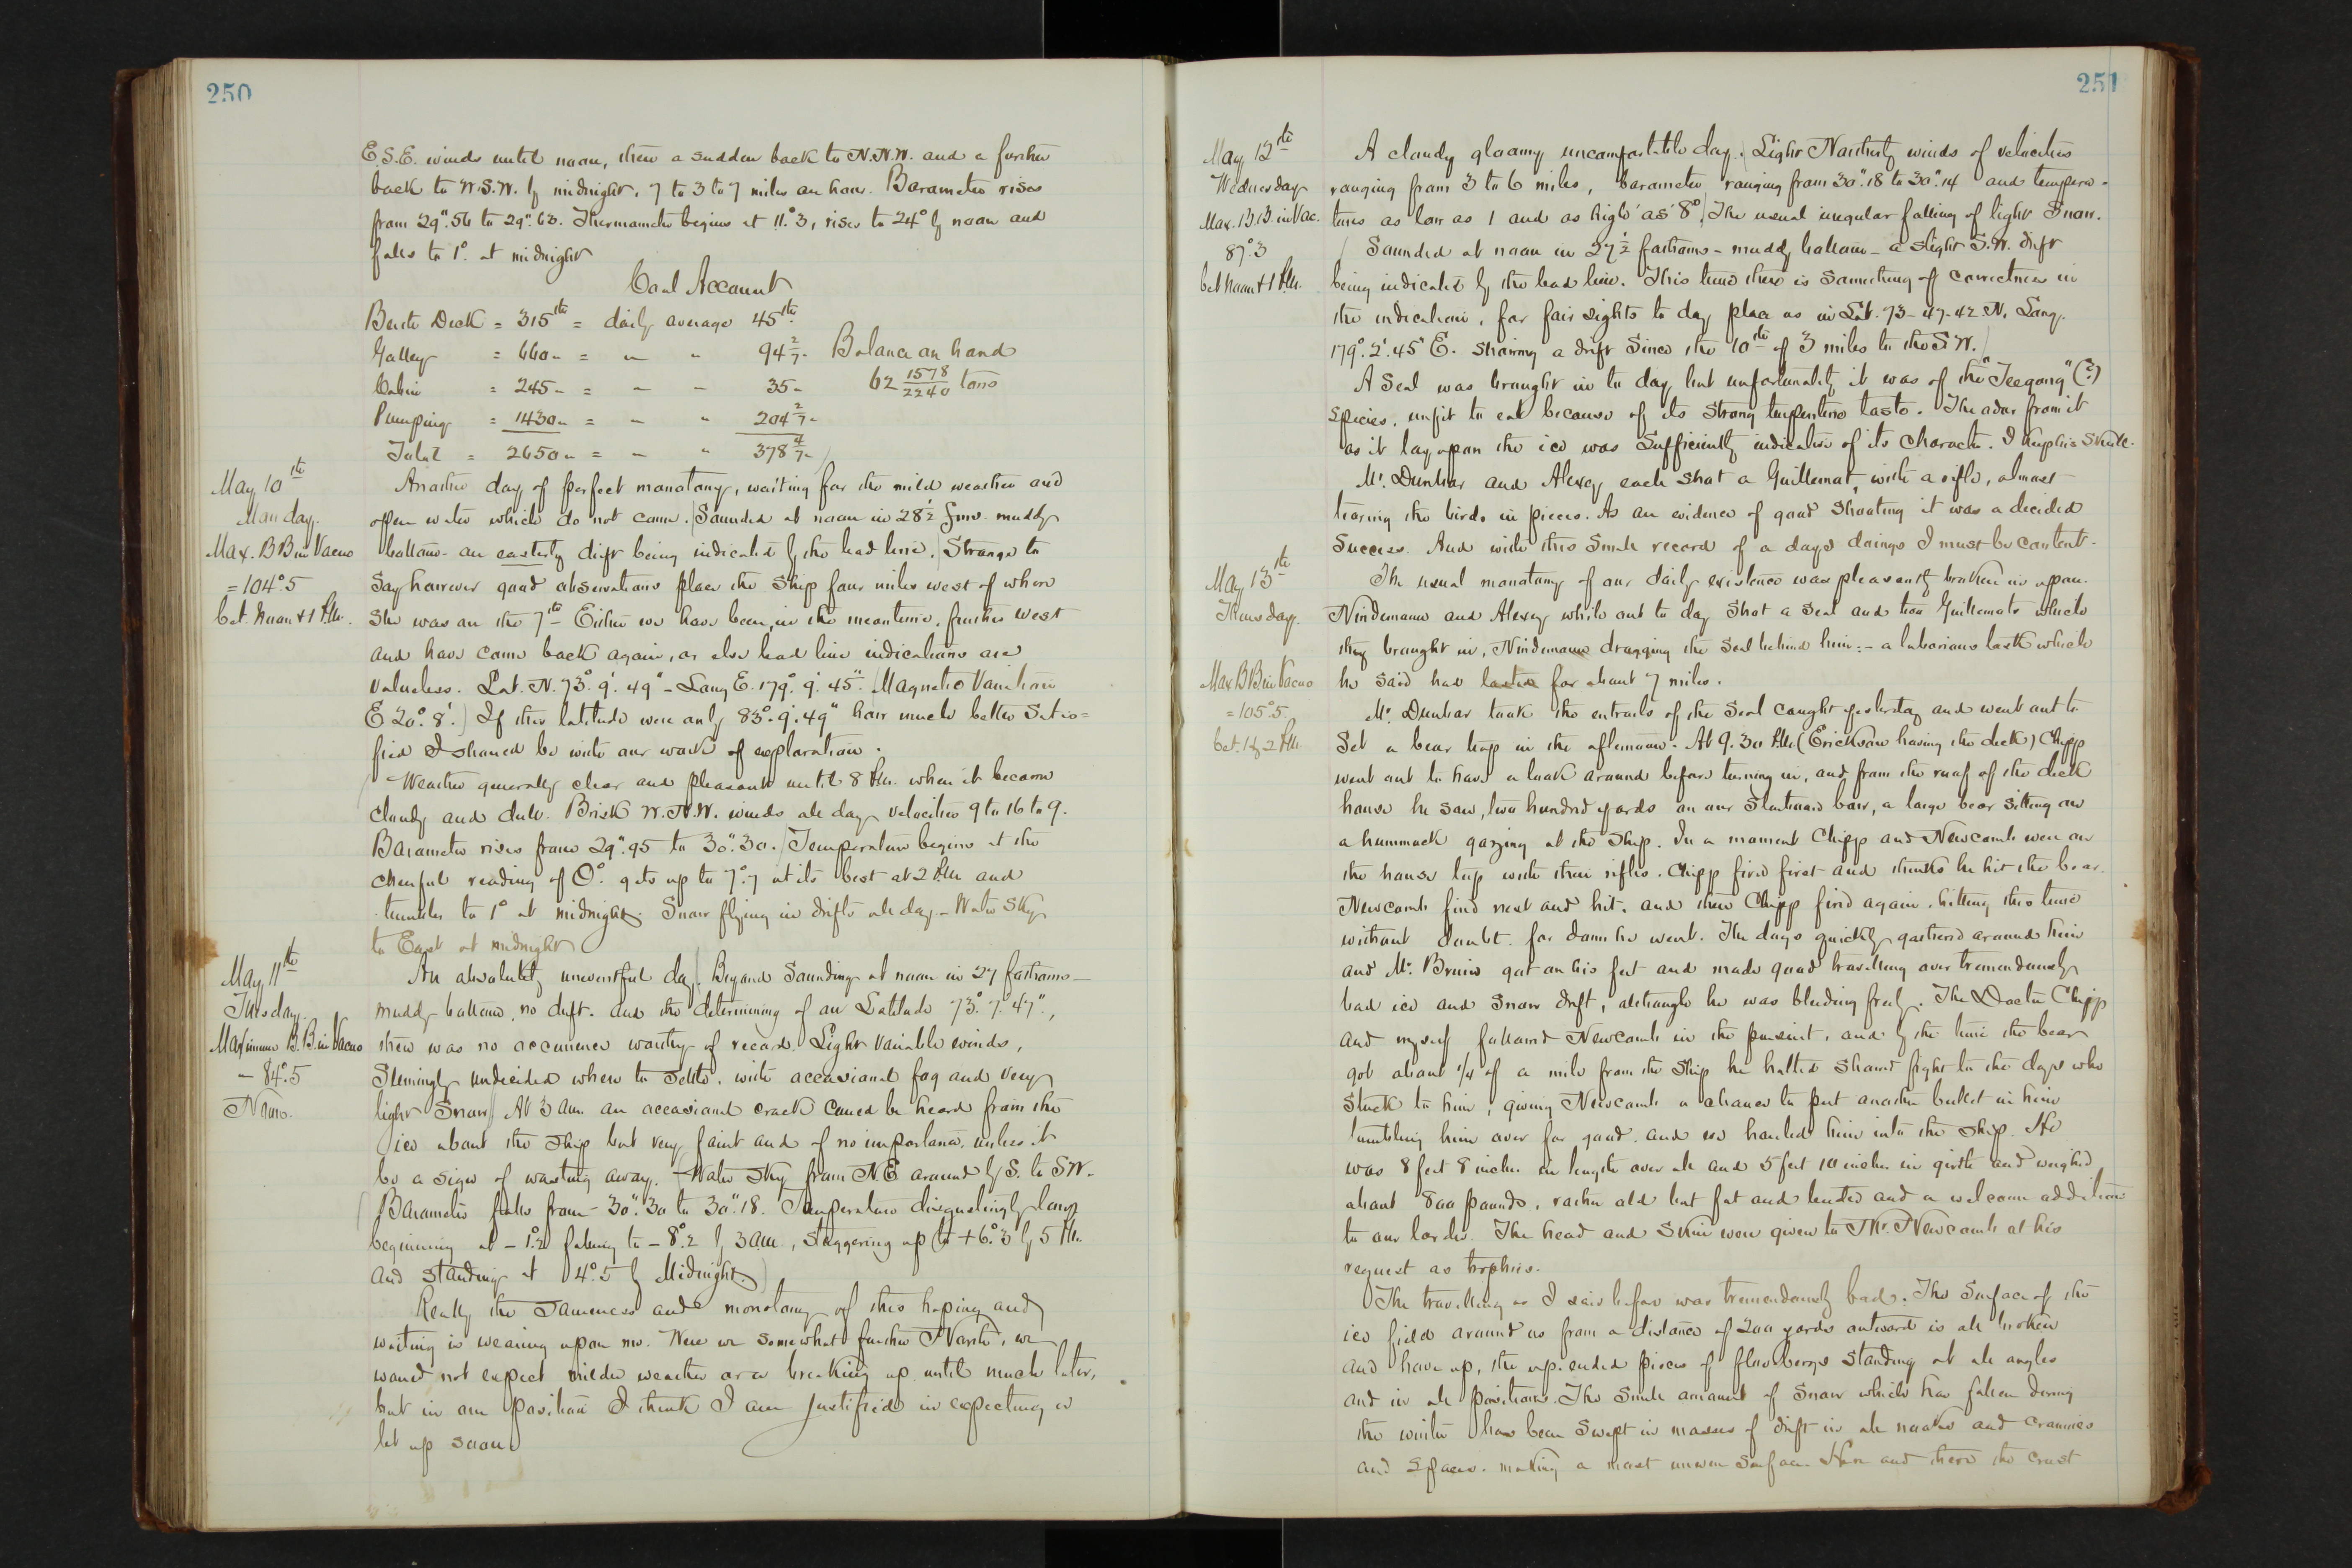 250
E.S.E. winds until noon, then a sudden back to N.N.W. and a further
back to W.S.W. by midnight. 7 to 3 to 7 miles an hour. Barometer rises
from 29".56 to 29".63. Thermometer begins at 11°.3, rises to 24° by noon and
falls to 1° at midnight
Coal Account
Berth Deck = 315 lbs = daily average 45 lbs
Galley = 660 " = " " 94 2/7 " Balance on hand
Cabin = 245 " = " " 35 " 62 1578/2240 tons
Pumping = 1430 " = " " 204 2/7 "
Total = 2650 " = " " 378 4/7 "
May 10th
Monday.
Max. B B in Vacuo
= 104°.5
bet. Noon & 1 P.M.
Another day of perfect monotony, waiting for the mild weather and
open water which do not come. Sounded at noon in 28 1/2 fms. muddy
bottom - an easterly drift being indicated by the lead line. Strange to
say however good observations place the ship four miles west of where
she was on the 7th. Either we have been, in the meantime, further west
and have come back again, or else lead line indications are
valueless. Lat. N. 73° 9' 49" - Long E. 179° 9' 45". Magnetic Variation
E 20° 8'. If this latitude were only 83° 9' 49" how much better satis=
fied I should be with our work of exploration.
Weather generally clear and pleasant until 8 P.M. when it became
cloudy and dull. Brisk W.N.W. winds all day velocities 9 to 16 to 9.
Barometer rises from 29".95 to 30".30. Temperature begins at the
cheerful reading of 0°. gets up to 7°.7 at its best at 2 P.M. and
tumbles to 1° at midnight. Snow flying in drifts all day - Water Sky
to East at midnight
May 11th
Tuesday.
Maximum B.B. in Vacuo
- 84°.5
Noon.
An absolutely uneventful day. Beyond Sounding at noon in 27 fathoms -
muddy bottom, no drift. and the determining of our Latitude 73° 7' 47",
there was no occurrence worthy of record. Light variable winds,
Seemingly undecided where to settle. with occasional fog and very
light Snow. At 3 a.m. an occasional crack could be heard from the
ice about the ship but very faint and of no importance. unless it
be a sign of wasting away. Water Sky from N.E around by S. to SW.
Barometer falls from 30".30 to 30".18. Temperature disgustingly low
beginning at - 1°.2 falling to - 8°.2 by 3 a.m., Staggering up to + 6°.3 by 5 P.M.
and standing at 4°.5 by Midnight.
Really the sameness and monotony of this hoping and
waiting is wearing upon me. Were we somewhat further North, we
would not expect milder weather or a breaking up until much later,
but in our position I think I am justified in expecting a
let up soon
251
May 12th
Wednesday
Max. B.B in Vac.
87°.3
bet Noon & 1 P.M.
A cloudy gloomy uncomfortable day. Light Northerly winds of velocities
ranging from 3 to 6 miles, barometer ranging from 30".18 to 30".14 and tempera-
tures as low as 1 and as high as 8°. The usual irregular falling of light Snow.
Sounded at noon in 27 1/2 fathoms - muddy bottom - a slight S.W. drift
being indicated by the lead line. This time there is something of correctness in
the indication, for fair sights to day place us in Lat. 73-47-42 N. Long.
179° 2' 45" E. showing a drift since the 10th of 3 miles to the S W.
A Seal was brought in to day but unfortunately it was of the "Teegong" (?)
Species, unfit to eat because of its strong turpentine taste. The odor from it
as it lay upon the ice was sufficiently indicative of its character. I kept his skull.
Mr. Dunbar and Alexey each shot a Guillemot, with a rifle, almost
tearing the birds in pieces. As an evidence of good shooting it was a decided
success. And with this small record of a days doings I must be content.
May 13th
Thursday.
Max B B in Vacuo
= 105°.5.
bet. 1 & 2 P.M.
The usual monotony of our daily existence was pleasantly broken in upon.
Nindemann and Alexey while out to day shot a Seal and two Guillemots which
they brought in, Nindemann dragging the Seal behind him: - a laborious task which
he said had lasted for about 7 miles.
Mr. Dunbar took the entrails of the Seal caught yesterday and went out to
Set a bear trap in the afternoon. At 9.30 P.M. (Ericksen having the deck) Chipp
went out to have a look around before turning in, and from the roof of the deck
house he saw, two hundred yards on our starboard bow, a large bear sitting on
a hummock gazing at the ship. In a moment Chipp and Newcomb were on
the house top with their rifles. Chipp fired first and thinks he hit the bear.
Newcomb fired next and hit. and then Chipp fired again. hitting this time
without doubt. for down he went. The dogs quickly gathered around him
and Mr. Bruin got on his feet and made good travelling over tremendously
bad ice and snow drift, although he was bleeding freely. The Doctor Chipp
and myself followed Newcomb in the pursuit, and by the time the bear
got about 1/4 of a mile from the ship he halted showed fight to the dogs who
stuck to him, giving Newcomb a chance to put another bullet in him
tumbling him over for good. and we hauled him into the ship. He
was 8 feet 8 inches in length over all and 5 feet 10 inches in girth and weighed
about 800 pounds, rather old but fat and tender and a welcome addition
to our larder. The head and skin were given to Mr. Newcomb at his
request as trophies.
The travelling as I said before was tremendously bad. The Surface of the
ice field around us from a distance of 200 yards outward is all broken
and hove up, the up-ended pieces of floebergs standing at all angles
and in all positions. The small amount of snow which has fallen during
the winter has been swept in masses of drift in all nooks and crannies
and spaces. making a most uneven surface. Here and there the crust